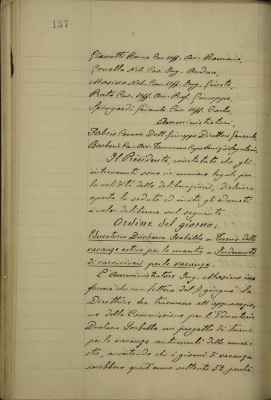 137
Gianotti Comm. Cav. Uff. Avv. Romano,
Nob. Cav. Ing. Andrea,
Masino Nob. Cav. Uff. Ing.
Prato Cav. Uff. Avv. Prof. Giuseppe,
Cav. Uff. Carlo,
Amministratori,
Dott. Giuseppe Direttore Generale,
Cav. Avv. Tommaso Segretario.
Il Presidente, constatato che gli
intervenuti sono in numero legale per
la validità delle deliberazioni, dichiara
aperta la seduta ed invita gli adunati
a voler deliberare sul seguente
Ordine del giorno:
Educatorio Duchessa Isabella - Turno delle
vacanze estive per le maestre - Indennità
di per le vacanze.
L'Amministratore Ing. Masino in-
forma che con lettera del giugno la
Direttrice ha trasmesso all'approvazio-
ne della Commissione per l'Educatorio
Duchessa Isabella un progetto di turno
per le vacanze autunnali delle mae-
stre, avvertendo che i giorni di vacanza
sarebbero quest'anno soltanto 52, perchè